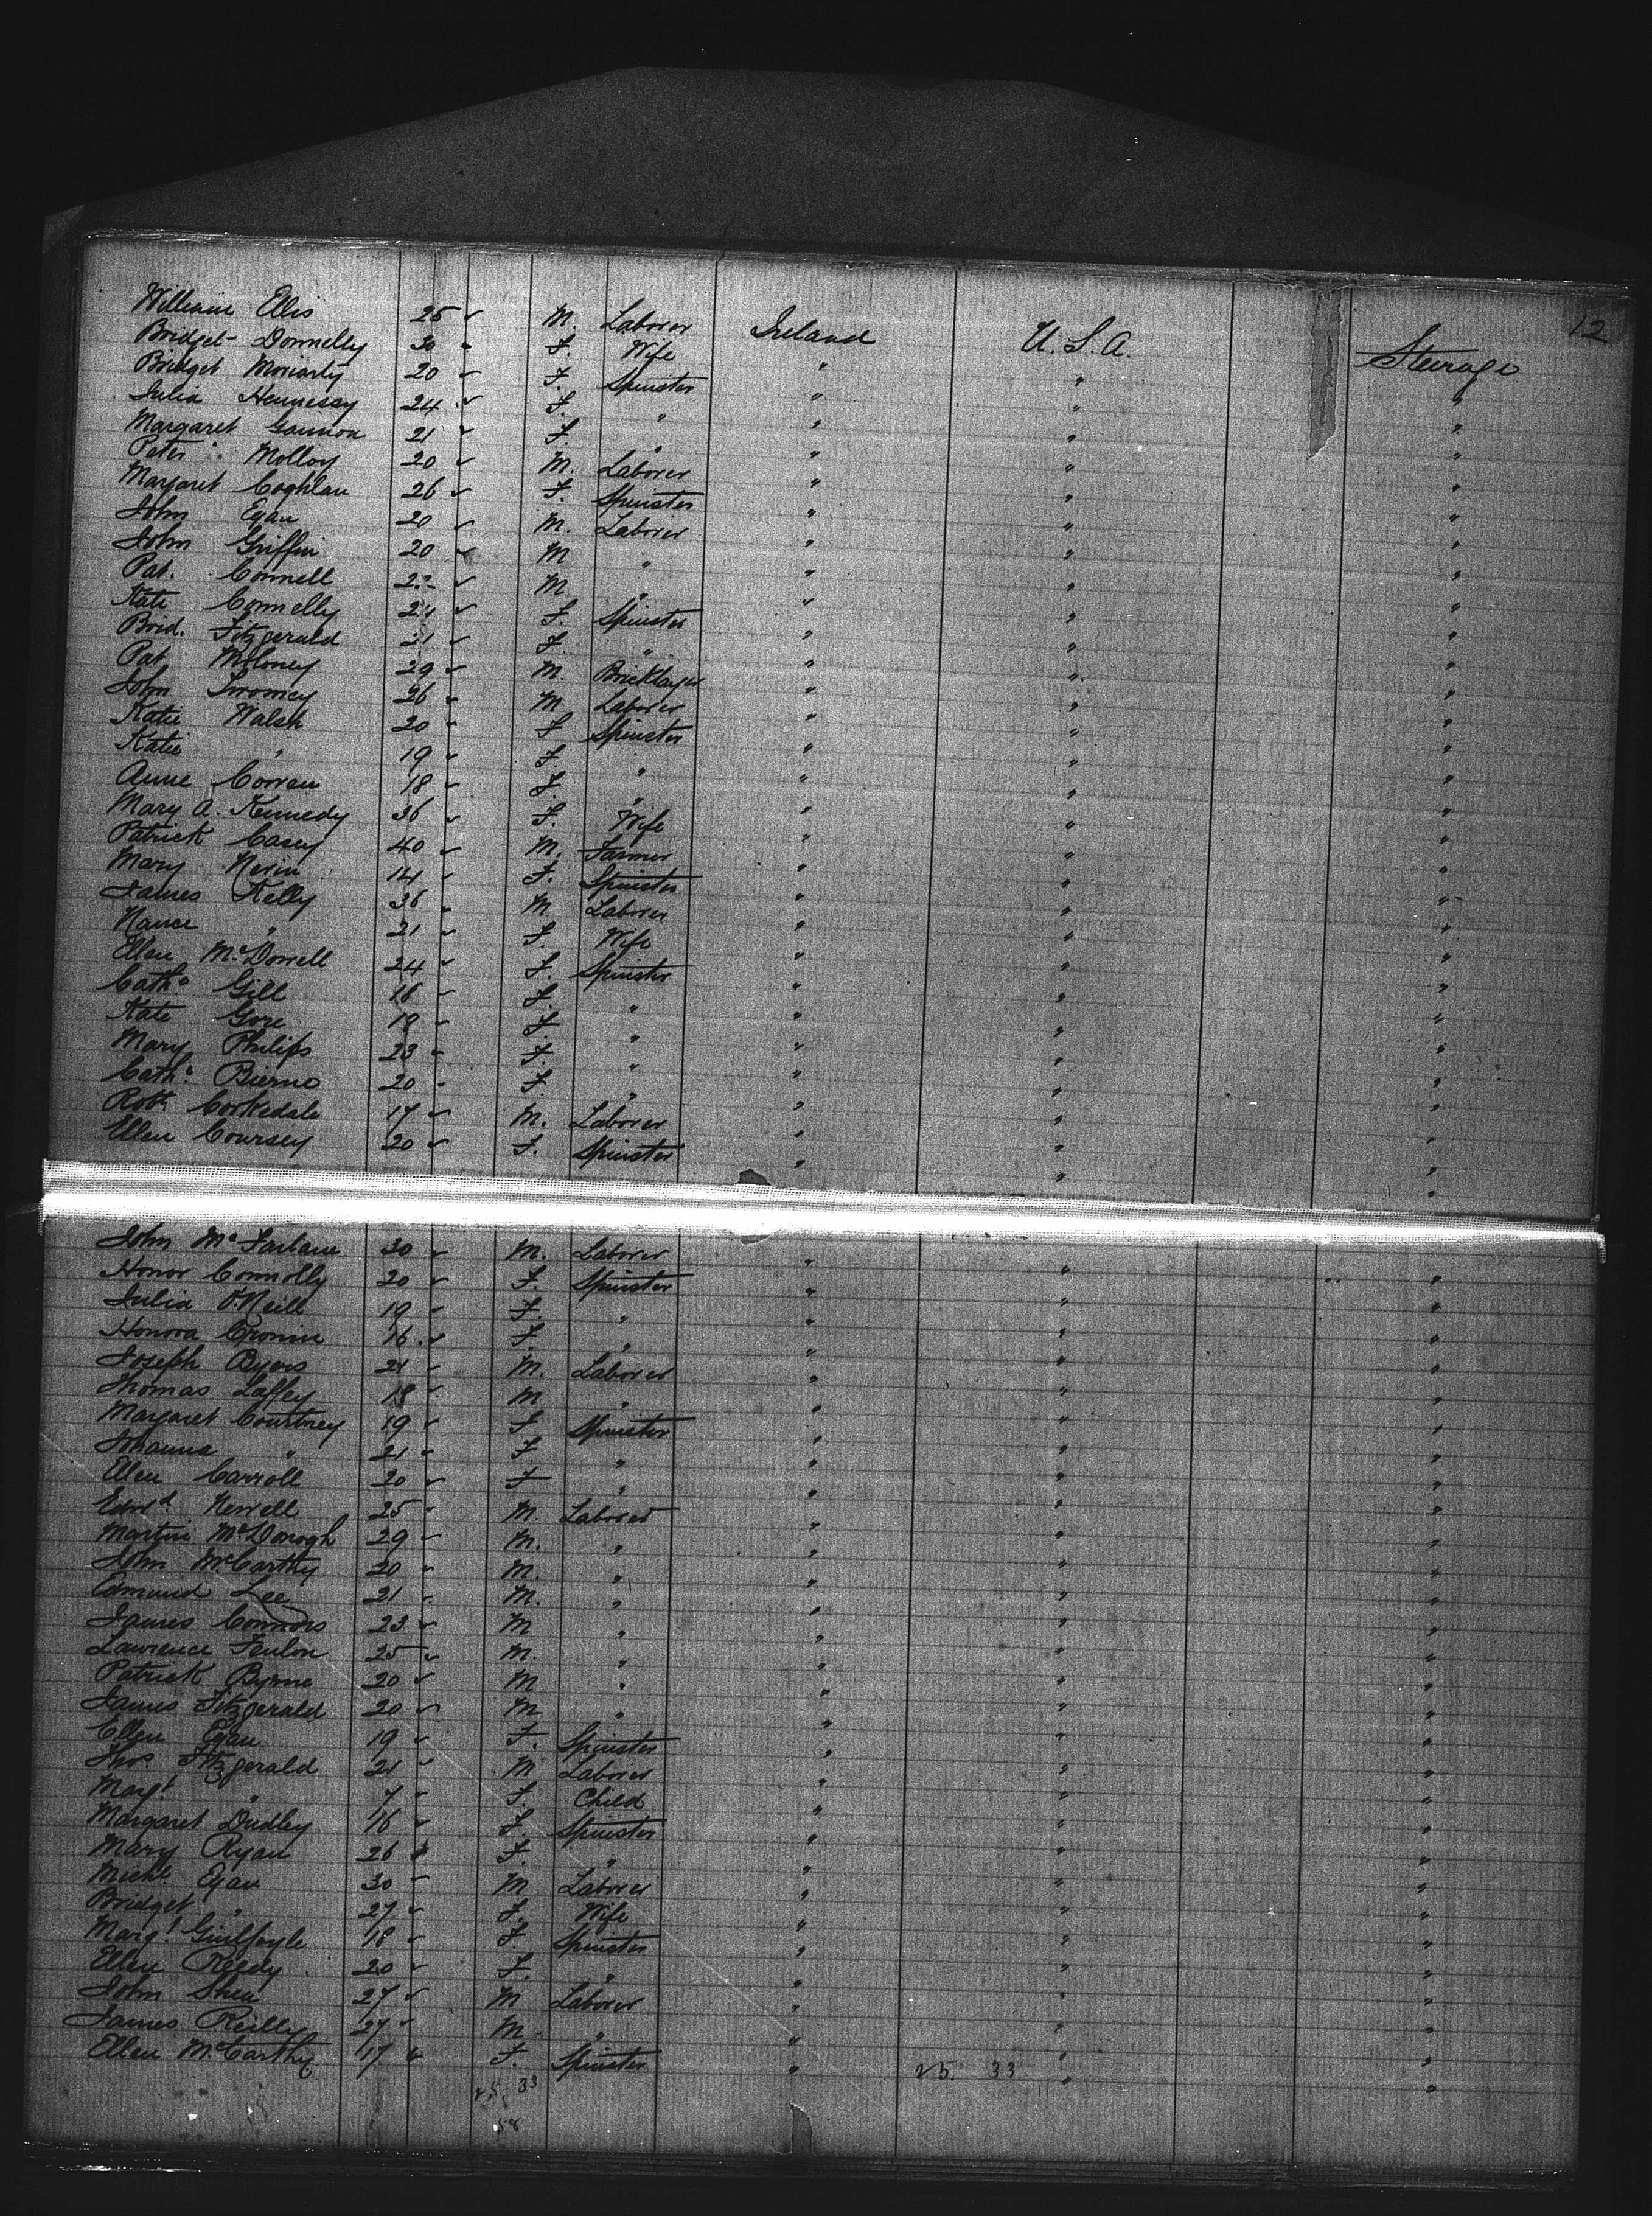 12
William Ellis 25 M. Laborer Ireland U.S.A. Steerage
Bridget Donnelly 30 F. Wife " " "
Bridget Moriarty 20 F. Spinster " " "
Julia Hennessy 24 F. " " " "
Margaret Gannon 21 F. " " " "
Peter Molloy 20 M. Laborer " " "
Margaret Coghlan 26 F. Spinster " " "
John Egan 20 M. Laborer " " "
John Griffin 20 M " " " "
Pat. Connell 22 M " " " "
Kate Connelly 21 F. Spinster " " "
Brid. Fitzgerald 21 F. " " " "
Pat Moloney 29 M. Bricklayer " " "
John Twomey 26 M Laborer " " "
Katie Walsh 20 F Spinster " " "
Katie " 19 F. " " " "
Anne Corran 18 F. " " " "
Mary A. Kennedy 36 F. Wife " " "
Patrick Casey 40 M. Farmer " " "
Mary Nevin 14 F. Spinster " " "
James Kelly 36 M Laborer " " "
Nance " 21 F. Wife " " "
Ellen 24 F. Spinster " " "
Cath. Gill 18 F. " " " "
Kate Gore 19 F " " " "
Mary Philips 23 F. " " " "
Cath. Bierne 20 F. " " " "
Robt. Corksdale 17 M. Laborer " " "
Ellen Coursey 20 F. Spinster " " "
John McFarlane 30 M. Laborer " " "
Honor Connolly 20 F. Spinster " " "
Julia O'Neill 19 F. " " " "
Honora Cronin 16 F. " " " "
Joseph Byers 21 M. Laborer " " "
Thomas Laffey 18 M " " " "
Margaret Courtney 19 F Spinster " " "
Johanna " 21 F. " " " "
Ellen Carroll 20 F " " " "
Edwd. Newell 25 M. Laborer " " "
Martin McDonogh 29 M. " " " "
John McCarthy 20 M. " " " "
Edmund Lee 21 M. " " " "
James Connors 23 M " " " "
Lawrence Fenlon 25 M. " " " "
Patrick Byrne 20 M " " " "
James Fitzgerald 20 M " " " "
Ellen Egan 19 F. Spinster " " "
Thos. Fitzgerald 21 M Laborer " " "
Margt. " 7 F. Child " " "
Margaret Dudley 16 F. Spinster " " "
Mary Ryan 26 F. " " " "
Michl Egan 30 M Laborer " " "
Bridget " 27 F. Wife " " "
Margt Guilfoyle 18 F. Spinster " " "
Ellen Reedy 20 F. " " " "
John Shea 27 M Laborer " " "
James Reilly 27 M " " " "
Ellen McCarthy 17 F. Spinster " " "
25. 33 25. 33
58